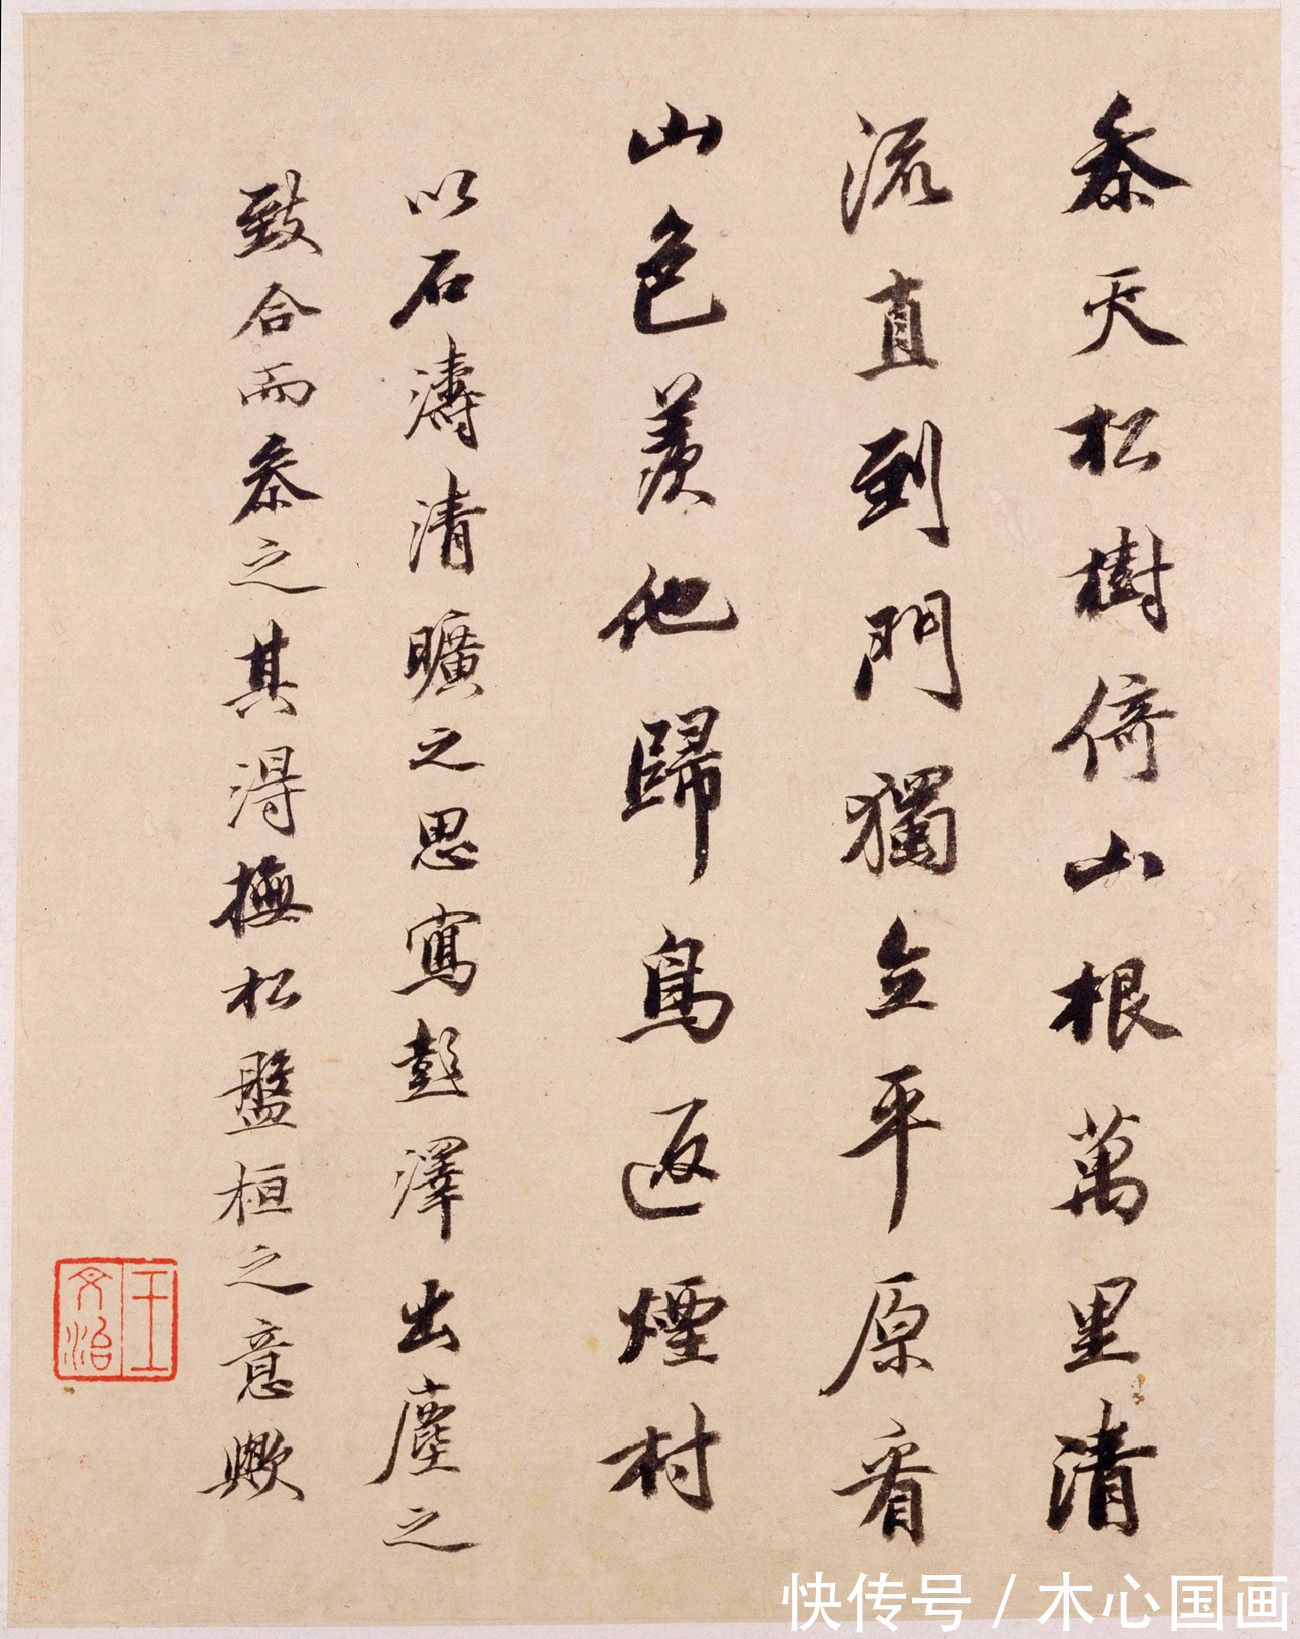 叅天松樹倚山根萬里清
流直到門獨立平原看
山色羨他歸鳥返煙村
以石濤清曠之思寫彭澤出塵之
致合而叅之其得撫松盤桓之意歟
王文治
快传号 / 木心国画